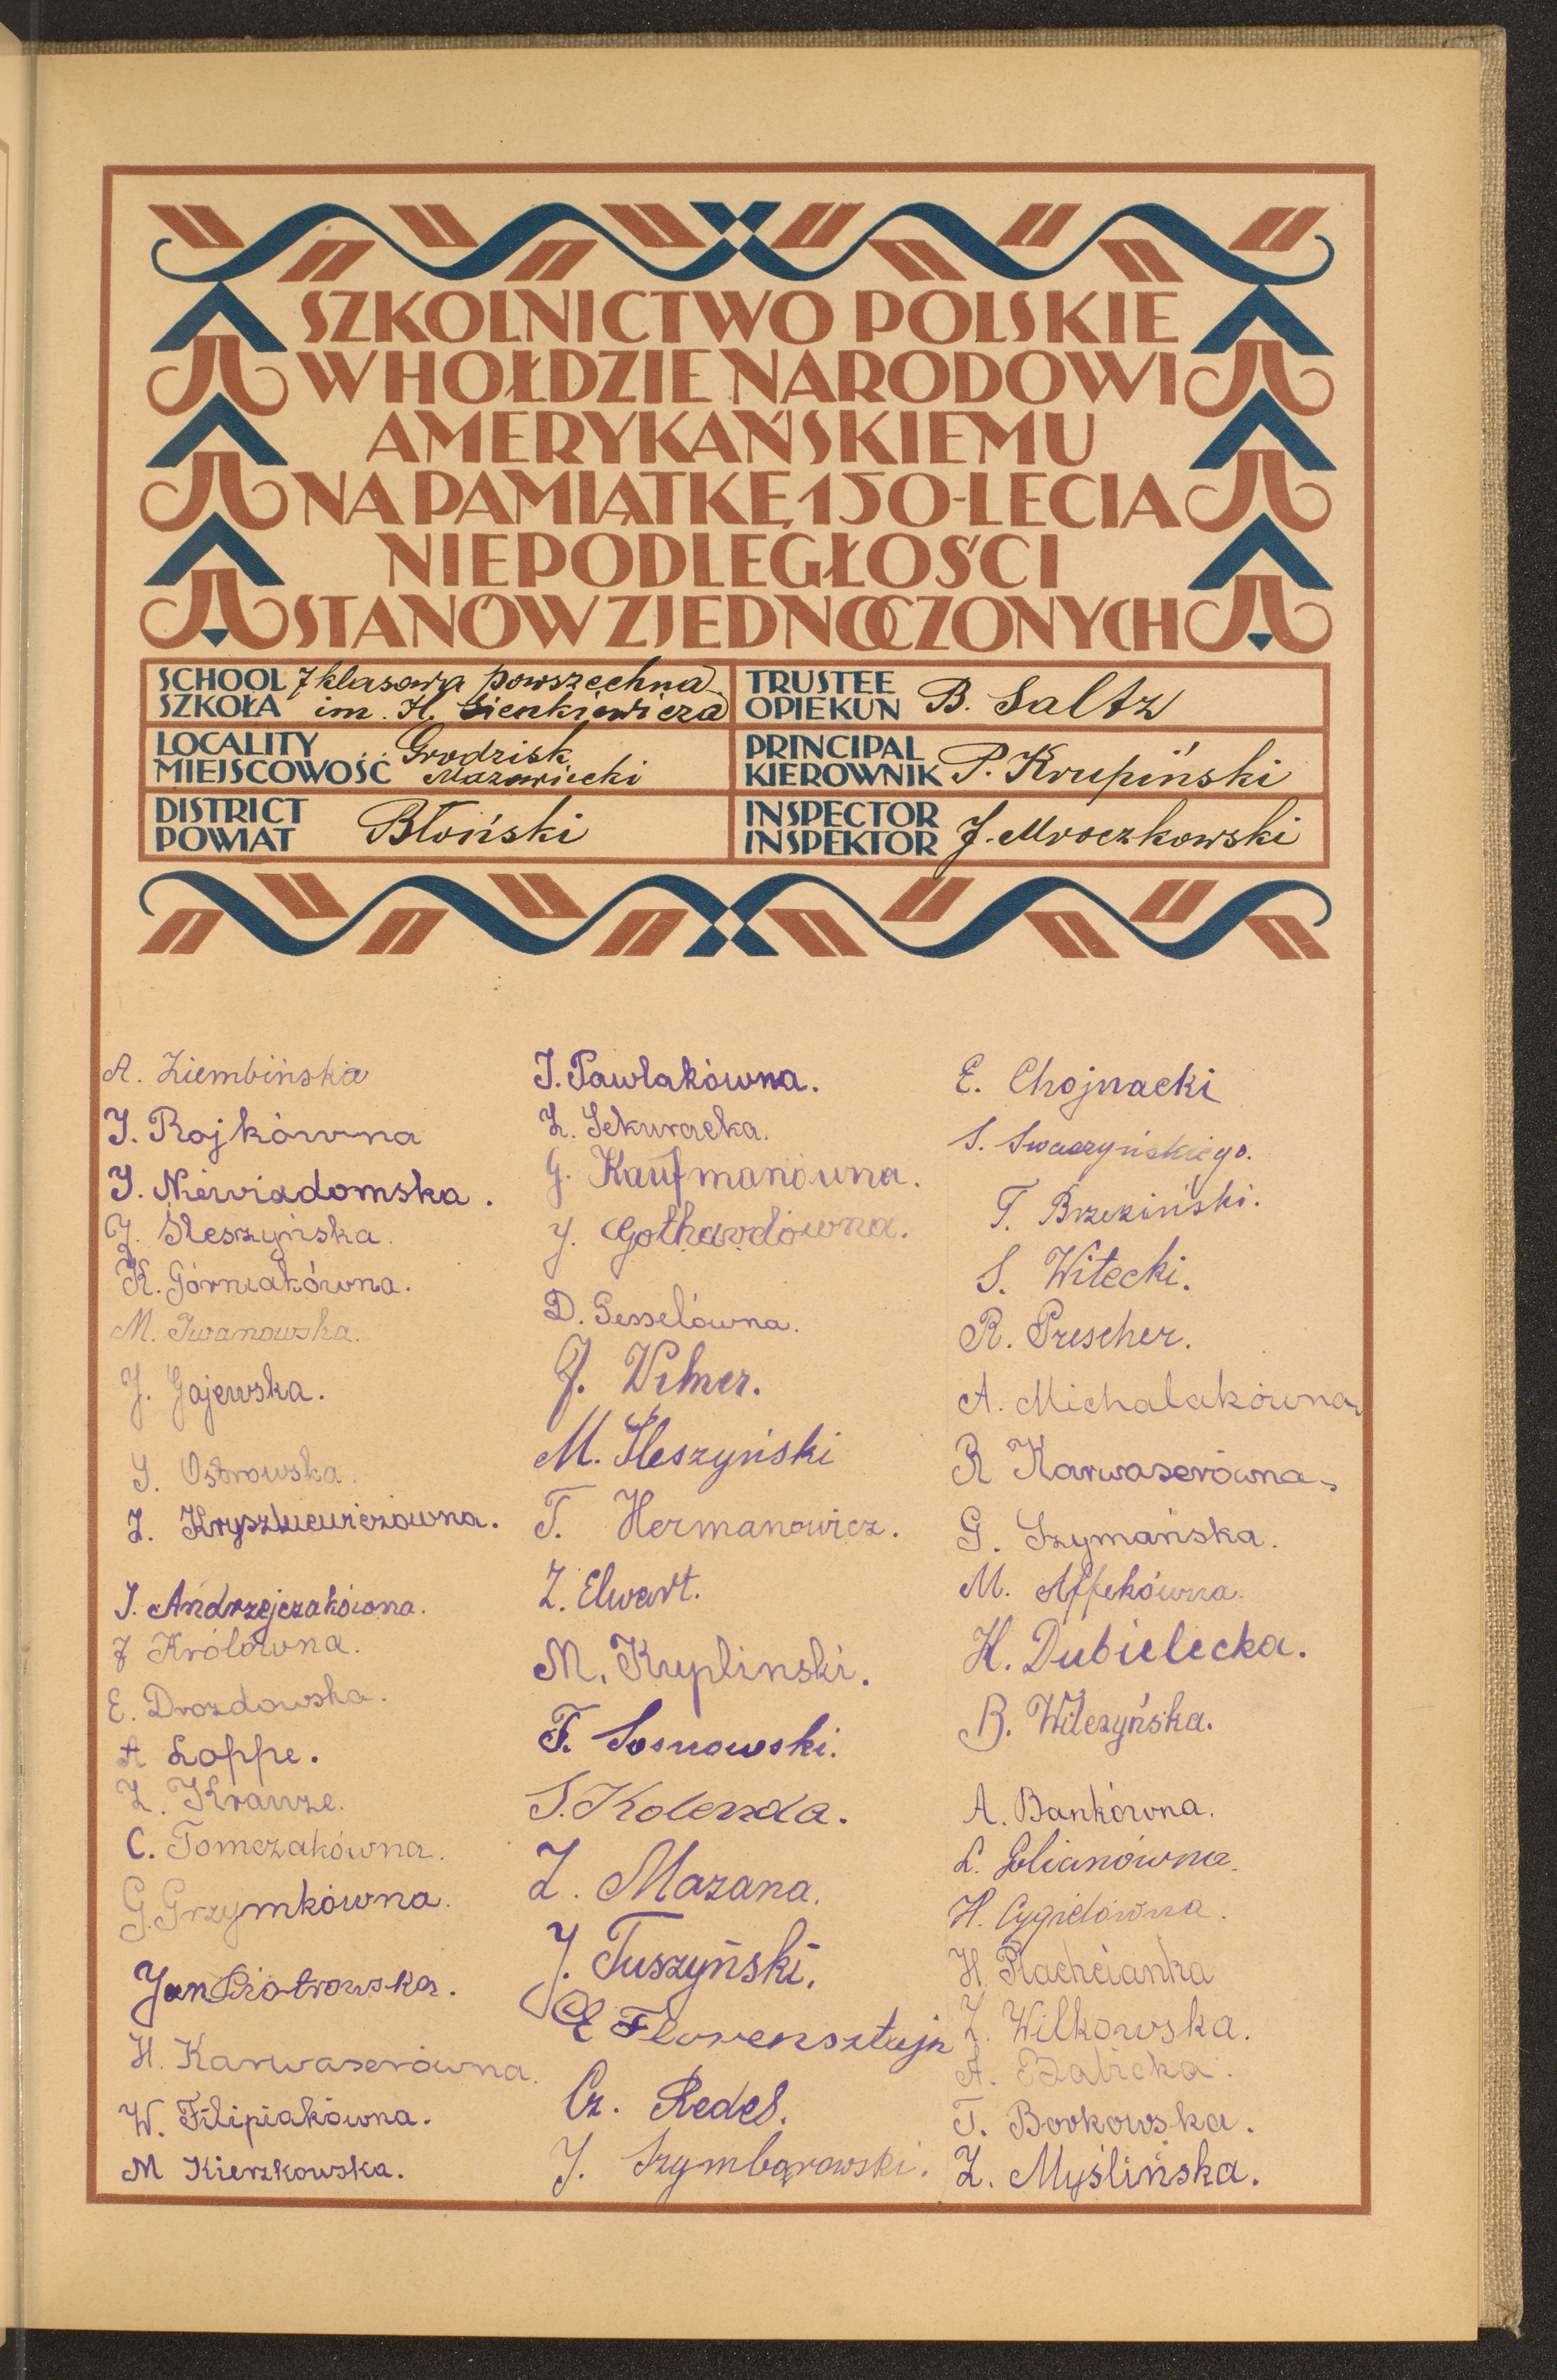 SZKOLNICTWO POLSKIE
W HOŁDZIE NARODOWI
AMERYKAŃSKIEMU
NA PAMIĄTKĘ 150-LECIA
NIEPODLEGŁOŚCI
STANÓW ZJEDNOCZONYCH
SCHOOL
SZKOŁA
7 klasowa powszechna
im. H. Sienkiewicza
TRUSTEE
OPIEKUN
B. Saltz
LOCALITY
MIEJSCOWOŚĆ
Grodzisk
Mazowiecki
PRINCIPAL
KIEROWNIK
P. Krupiński
DISTRICT
POWIAT
Błoński
INSPECTOR
INSPEKTOR
J. Mroczkowski
A. Ziembińska
J. Rojkówna
J. Niewiadomska.
J. Śleszyńska.
K. Górniakówna.
M. Iwanowska.
J. Gajewska.
J. Ostrowska.
Z. Kryszkiewiczówna.
J. Andrzejczakówna.
J Królówna.
E. Drozdowska.
A Loppe.
Z. Krauze.
C. Tomczakówna.
G. Grzymkówna.
Jan Piotrowska.
H. Karwaserówna.
W. Filipiakówna.
M Kierzkowska.
J. Pawlakówna.
Z. Sekuracka.
G. Kaufmanówna.
J. Gothardówna.
D. Gesselówna.
J. Wilner.
M. Śleszyński
T. Hermanowicz.
Z. Elwart.
M. Kuplinski.
F. Sosnowski.
S. Kolenda.
Z. Mazana.
J. Tuszyński.
E Florensztajn
Cz. Redel.
J. Szymborowski.
E. Chojnacki
S. Swaczyńskiego.
T. Brzeziński.
S. Witecki.
R. Prescher.
A. Michalakówna
R Karwaserówna.
G. Szymańska.
M. Affekówna.
H. Dubielecka.
B. Wilczyńska.
A. Bankówna.
L. Golianówna.
H. Cygiełówna.
H. Płachcianka
Z. Wilkowska.
A. Babicka.
T. Borkowska.
Z. Myślińska.